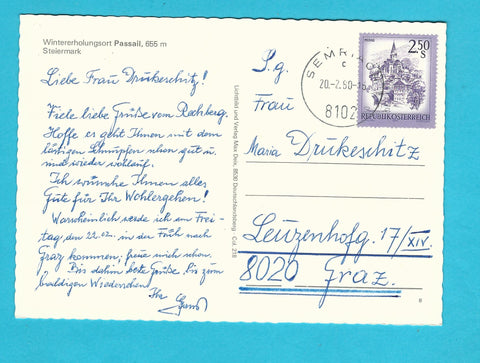 Wintererholungsort Passail, 655 m
Steiermark
Liebe Frau Drukeschitz!
Viele liebe Grüße vom Rechberg.
Hoffe es geht Ihnen mit dem
lästigen Schnupfen schon gut u.
sind wieder wohlauf.
Ich wünsche Ihnen alles
Gute für Ihr Wohlergehen!
Warscheinlich werde ich am Frei-
tag, den 22.02. in der Früh nach
Graz kommen; freue mich schon.
Bis dahin beste Grüße, bis zum
baldigen Wiedersehen
Ihr
Lichtbild und Verlag Max Deix, 8530 Deutschlandsberg Col. 238
S.g.
Frau
Maria Drukeschitz
Leuzenhofg. 17/XIV
8020 Graz.
SEMRIACH
c
20.-2.80-
8102
2.50
S
REPUBLIK ÖSTERREICH